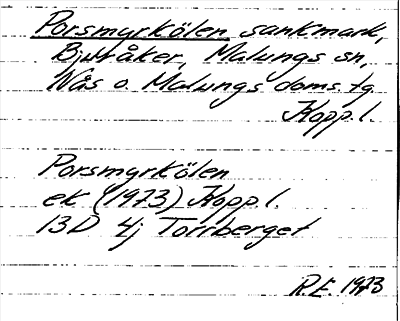 Porsmyrkölen sankmark,
Bjuråker, Malungs sn,
Nås o. Malungs doms. tg
Kopp. l.
Porsmyrkölen
ek (1973) Kopp. l.
13D 4j Torrberget
R.E. 1973